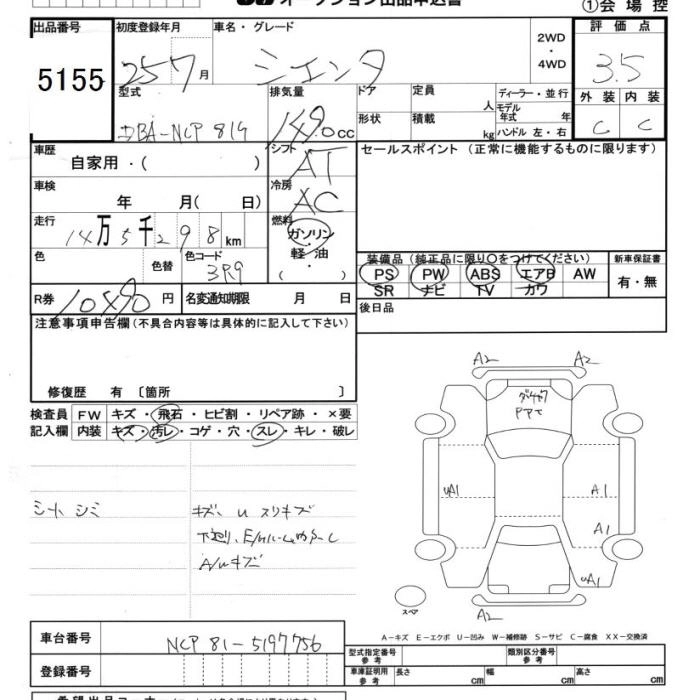 オークション出品申込書
①会場控
出品番号 初度登録年月 車名・グレード 2WD・4WD 評価点
5155 25 7月 シエンタ 3.5
型式 排気量 ドア 定員 人 ディーラー・並行 外装 内装
DBA-NCP81G 1490cc 形状 積載 kg モデル年式 年 ハンドル 左・右 C C
車歴 自家用・( ) シフト AT セールスポイント (正常に機能するものに限ります)
車検 年 月( 日) 冷房 AC
走行 14万5千298km 燃料 ガソリン・軽油・( )
色 色替 色コード 3R9
装備品 (純正品に限り○をつけてください) 新車保証書
PS PW ABS エアB AW 有・無
SR ナビ TV カワ
R券 10490円 名変通知期限 月 日 後日品
注意事項申告欄 (不具合内容等は具体的に記入して下さい)
修復歴 有 〔箇所 〕
検査員 FW キズ・飛石・ヒビ割・リペア跡・×要
記入欄 内装 キズ・汚レ・コゲ・穴・スレ・キレ・破レ
シート シミ
キズ、U スリキズ
A/Uキズ
A2 A2
UA1 A1
A1
UA1
スペア
A2
A−キズ E−エクボ U−凹み W−補修跡 S−サビ C−腐食 XX−交換済
車台番号 NCP81-5197756
型式指定番号 参考 類別区分番号 参考
登録番号 車庫証明用 参考 長さ cm 幅 cm 高さ cm